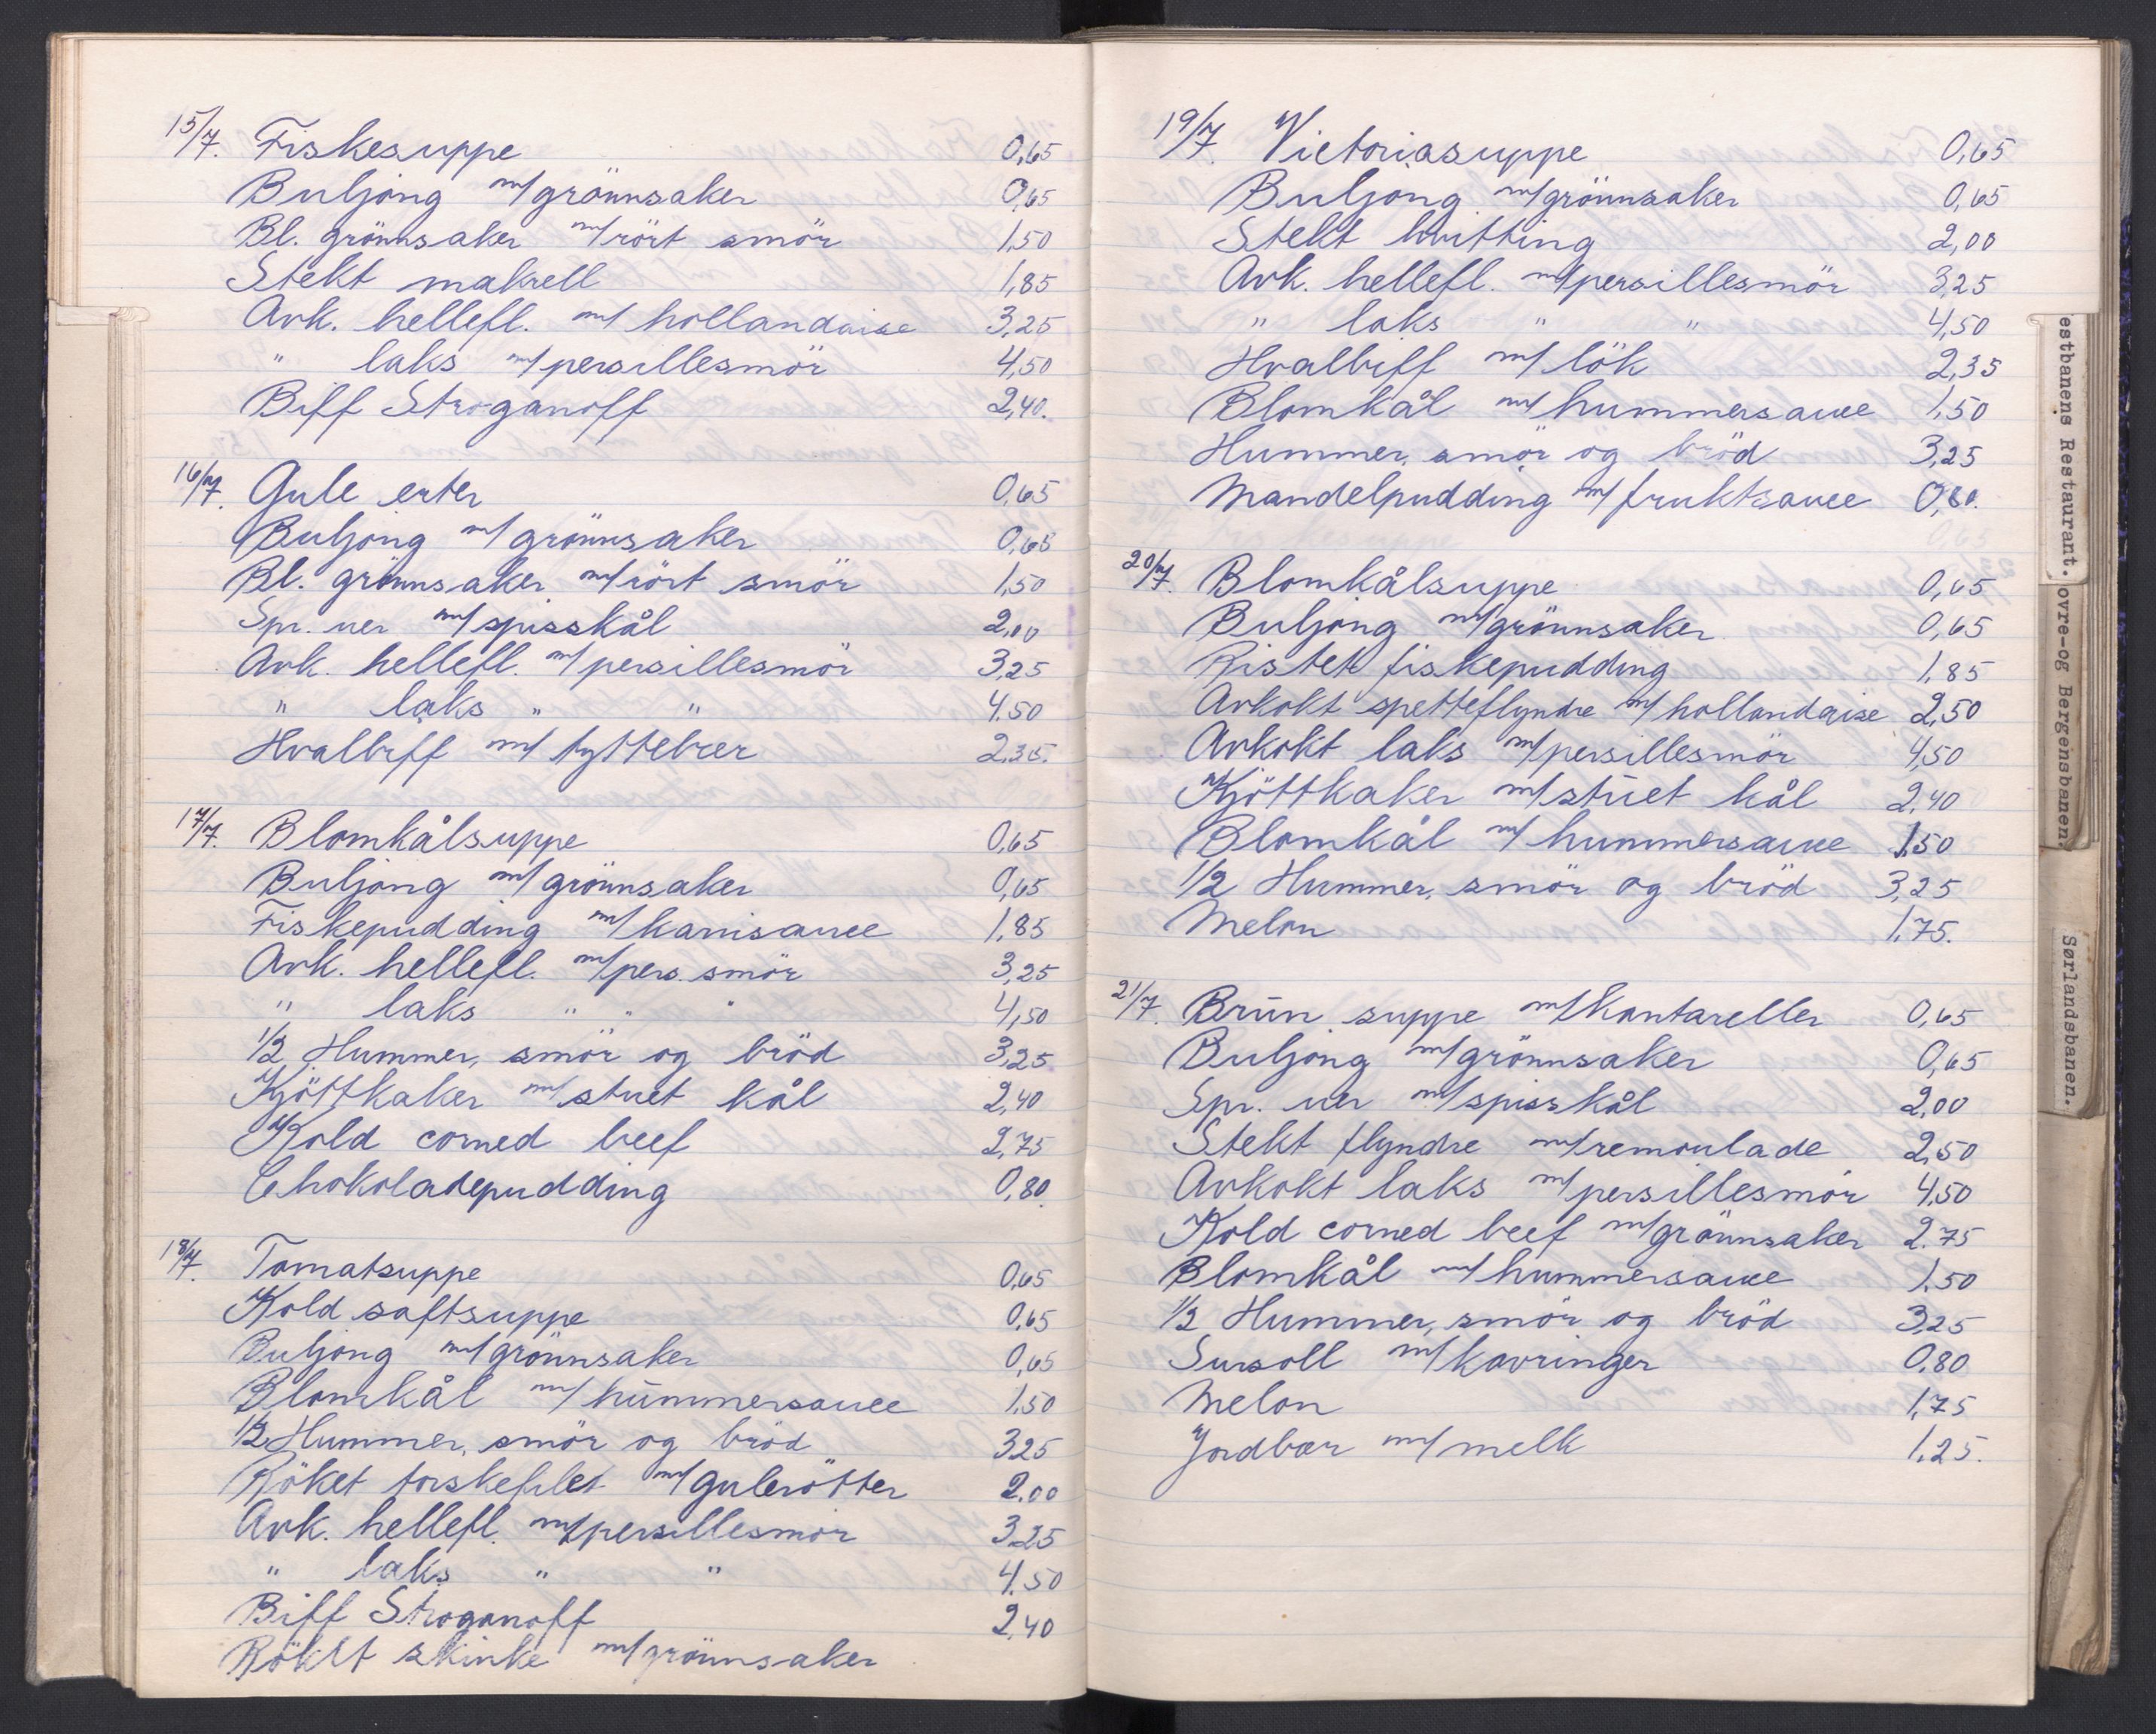 15/7. Fiskesuppe 0,65
Buljong m/grönnsaker 0,65
Bl. grönnsaker m/rört smör 1,50
Stekt makrell 1,85
Avk. hellefl. m/ hollandaise 3,25
" laks m/persillesmör 4,50
Biff Stroganoff 2,40.
16/7. Gule erter 0,65
Buljong m/grönnsaker 0,65
Bl. grönnsaker m/rört smör 1,50
Spr. uer m/spisskål 2,00
Avk. hellefl. m/persillesmör 3,25
" laks " " 4.50
Hvalbiff m/ tyttebær 2,35.
17/7. Blomkålsuppe 0,65
Buljong m/grönnsaker 0,65
Fiskepudding m/karrisauce 1,85
Avk. hellefl. m/pers. smör 3,25
" laks " " " 4,50
1/2 Hummer, smör og bröd 3,25
Kjöttkaker m/stuet kål 2,40
Kold corned beef 2,75
Chokoladepudding 0,80.
18/7. Tomatsuppe 0,65
Kold saftsuppe 0,65
Buljong m/grönnsaker 0,65
Blomkål m/hummersauce 1,50
1/2 Hummer, smör og bröd 3,25
Röket torskefilet m/gulerötter 2.00
Avk. hellefl. m/persillesmör 3,25
" laks " " 4.50
Biff Stroganoff 2,40
Rökt skinke m/grönnsaker
19/7. Victoriasuppe 0,65
Buljong m/grönnsaker 0,65
Stekt hvitting 2,00
Avk. hellefl. m/persillesmör 3,25
" laks " " 4,50
Hvalbiff m/ lök 2,35
Blomkål m/hummersauce 1,50
Hummer, smör og bröd 3,25
Mandelpudding m/fruktsauce 0,80.
20/7. Blomkålsuppe 0,65
Buljong m/grönnsaker 0,65
Ristet fiskepudding 1,85
Avkokt spetteflyndre m/hollandaise 2,50
Avkokt laks m/persillesmör 4,50
Kjöttkaker m/stuet kål 2,40
Blomkål m/ hummersauce 1,50
1/2 Hummer, smör og bröd 3,25
Melon 1,75.
21/7. Brun suppe m/kantareller 0,65
Buljong m/grönnsaker 0,65
Spr. uer m/spisskål 2,00
Stekt flyndre m/remoulade 2,50
Avkokt laks m/persillesmör 4,50
Kold corned beef m/grönnsaker 2.75
Blomkål m/hummersauce 1,50
1/2 Hummer, smör og bröd 3,25
Sursoll m/kavringer 0,80
Melon 1,75
Jordbær m/melk 1,25.
estbanens Restaurant.
ovre-og Bergensbanen
Sørlandsbanen.